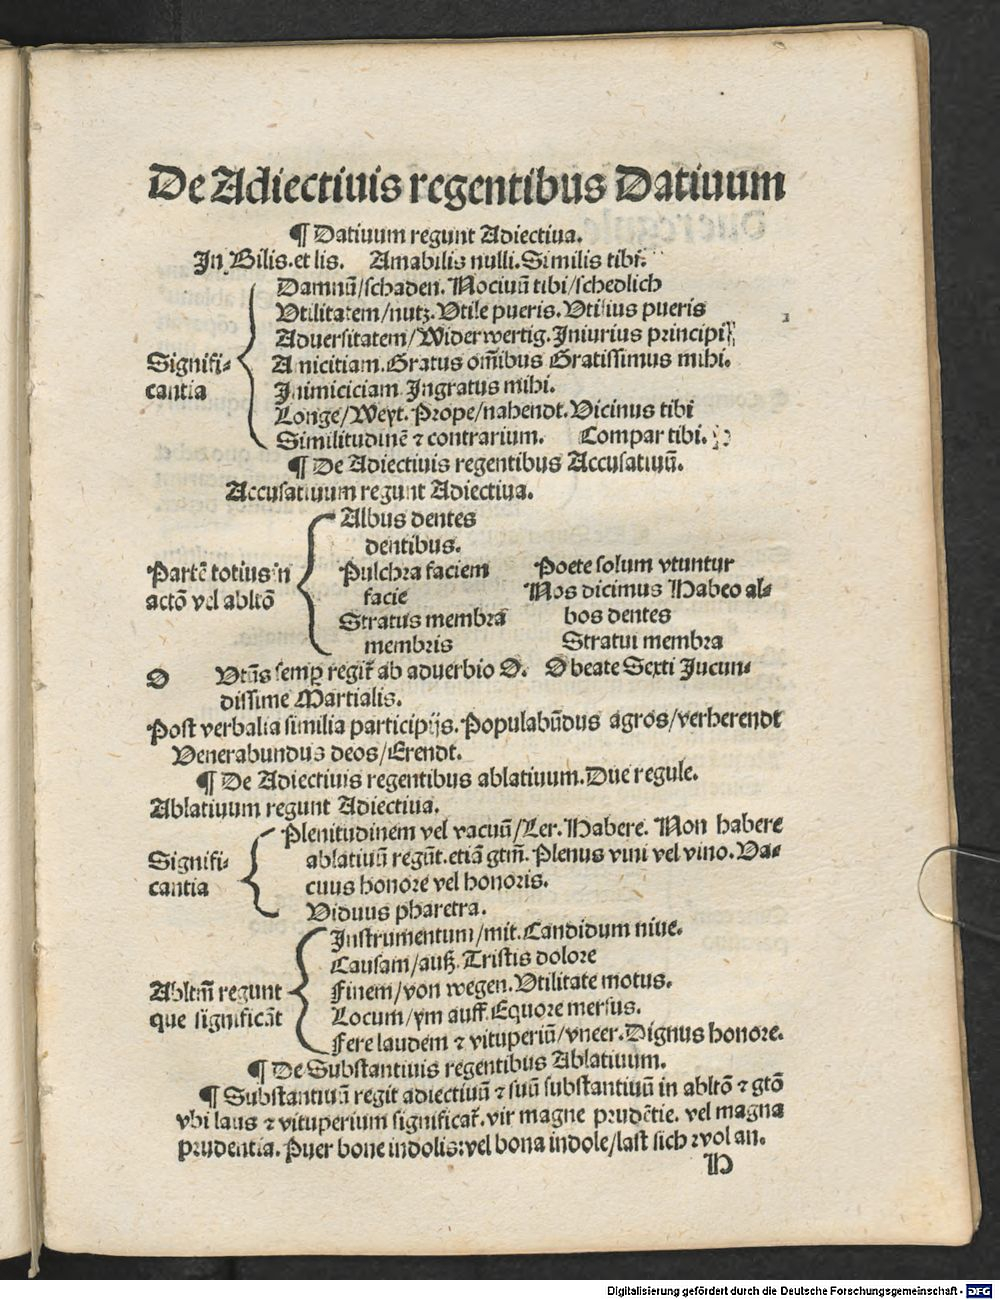 De Adiectiuis regentibus Datiuum
¶ Datiuum regunt Adiectiua.
In Bilis. et lis. Amabilis nulli. Similis tibi.
Damnū/schaden. Nociuū tibi/schedlich
Vtilitatem/nutz. Vtile pueris. Vtilius pueris
Aduersitatem/Widerwertig. Iniurius principi
Signifi-
cantia
Amicitiam. Gratus om̄ibus Gratissimus mihi.
Inimiciciam. Ingratus mihi.
Longe/Weyt. Prope/nahendt. Vicinus tibi
Similitudinē ⁊ contrarium. Compar tibi.
¶ De Adiectiuis regentibus Accusatiuū.
Accusatiuum regunt Adiectiua.
Albus dentes
dentibus.
Partē totius in
actō vel abltō
Pulchra faciem
facie
Stratus membra
membris
Poete solum vtuntur
Nos dicimus Habeo al-
bos dentes
Stratui membra
O Vtūs semꝑ regit̄ ab aduerbio O. O beate Sexti Jucun-
dissime Martialis.
Post verbalia similia participijs. Populabūdus agros/verherendt
Venerabundus deos/Erendt.
¶ De Adiectiuis regentibus ablatiuum. Due regule.
Ablatiuum regunt Adiectiua.
Signifi-
cantia
Plenitudinem vel vacuū/Ler. Habere. Non habere
ablatiuū regūt. etiā gtm̄. Plenus vini vel vino. Va-
cuus honore vel honoris.
Viduus pharetra.
Abltm̄ regunt
que significāt
Instrumentum/mit. Candidum niue.
Causam/auß. Tristis dolore
Finem/von wegen. Vtilitate motus.
Locum/ym auff. Equore mersus.
Fere laudem ⁊ vituperiū/vneer. Dignus honore.
¶ De Substantiuis regentibus Ablatiuum.
¶ Substantiuū regit adiectiuū ⁊ suū substantiuū in abltō ⁊ gtō
vbi laus ⁊ vituperium significat̄. vir magne prudētie. vel magna
prudentia. Puer bone indolis: vel bona indole/last sich wol an.
H
Digitalisierung gefördert durch die Deutsche Forschungsgemeinschaft - DFG